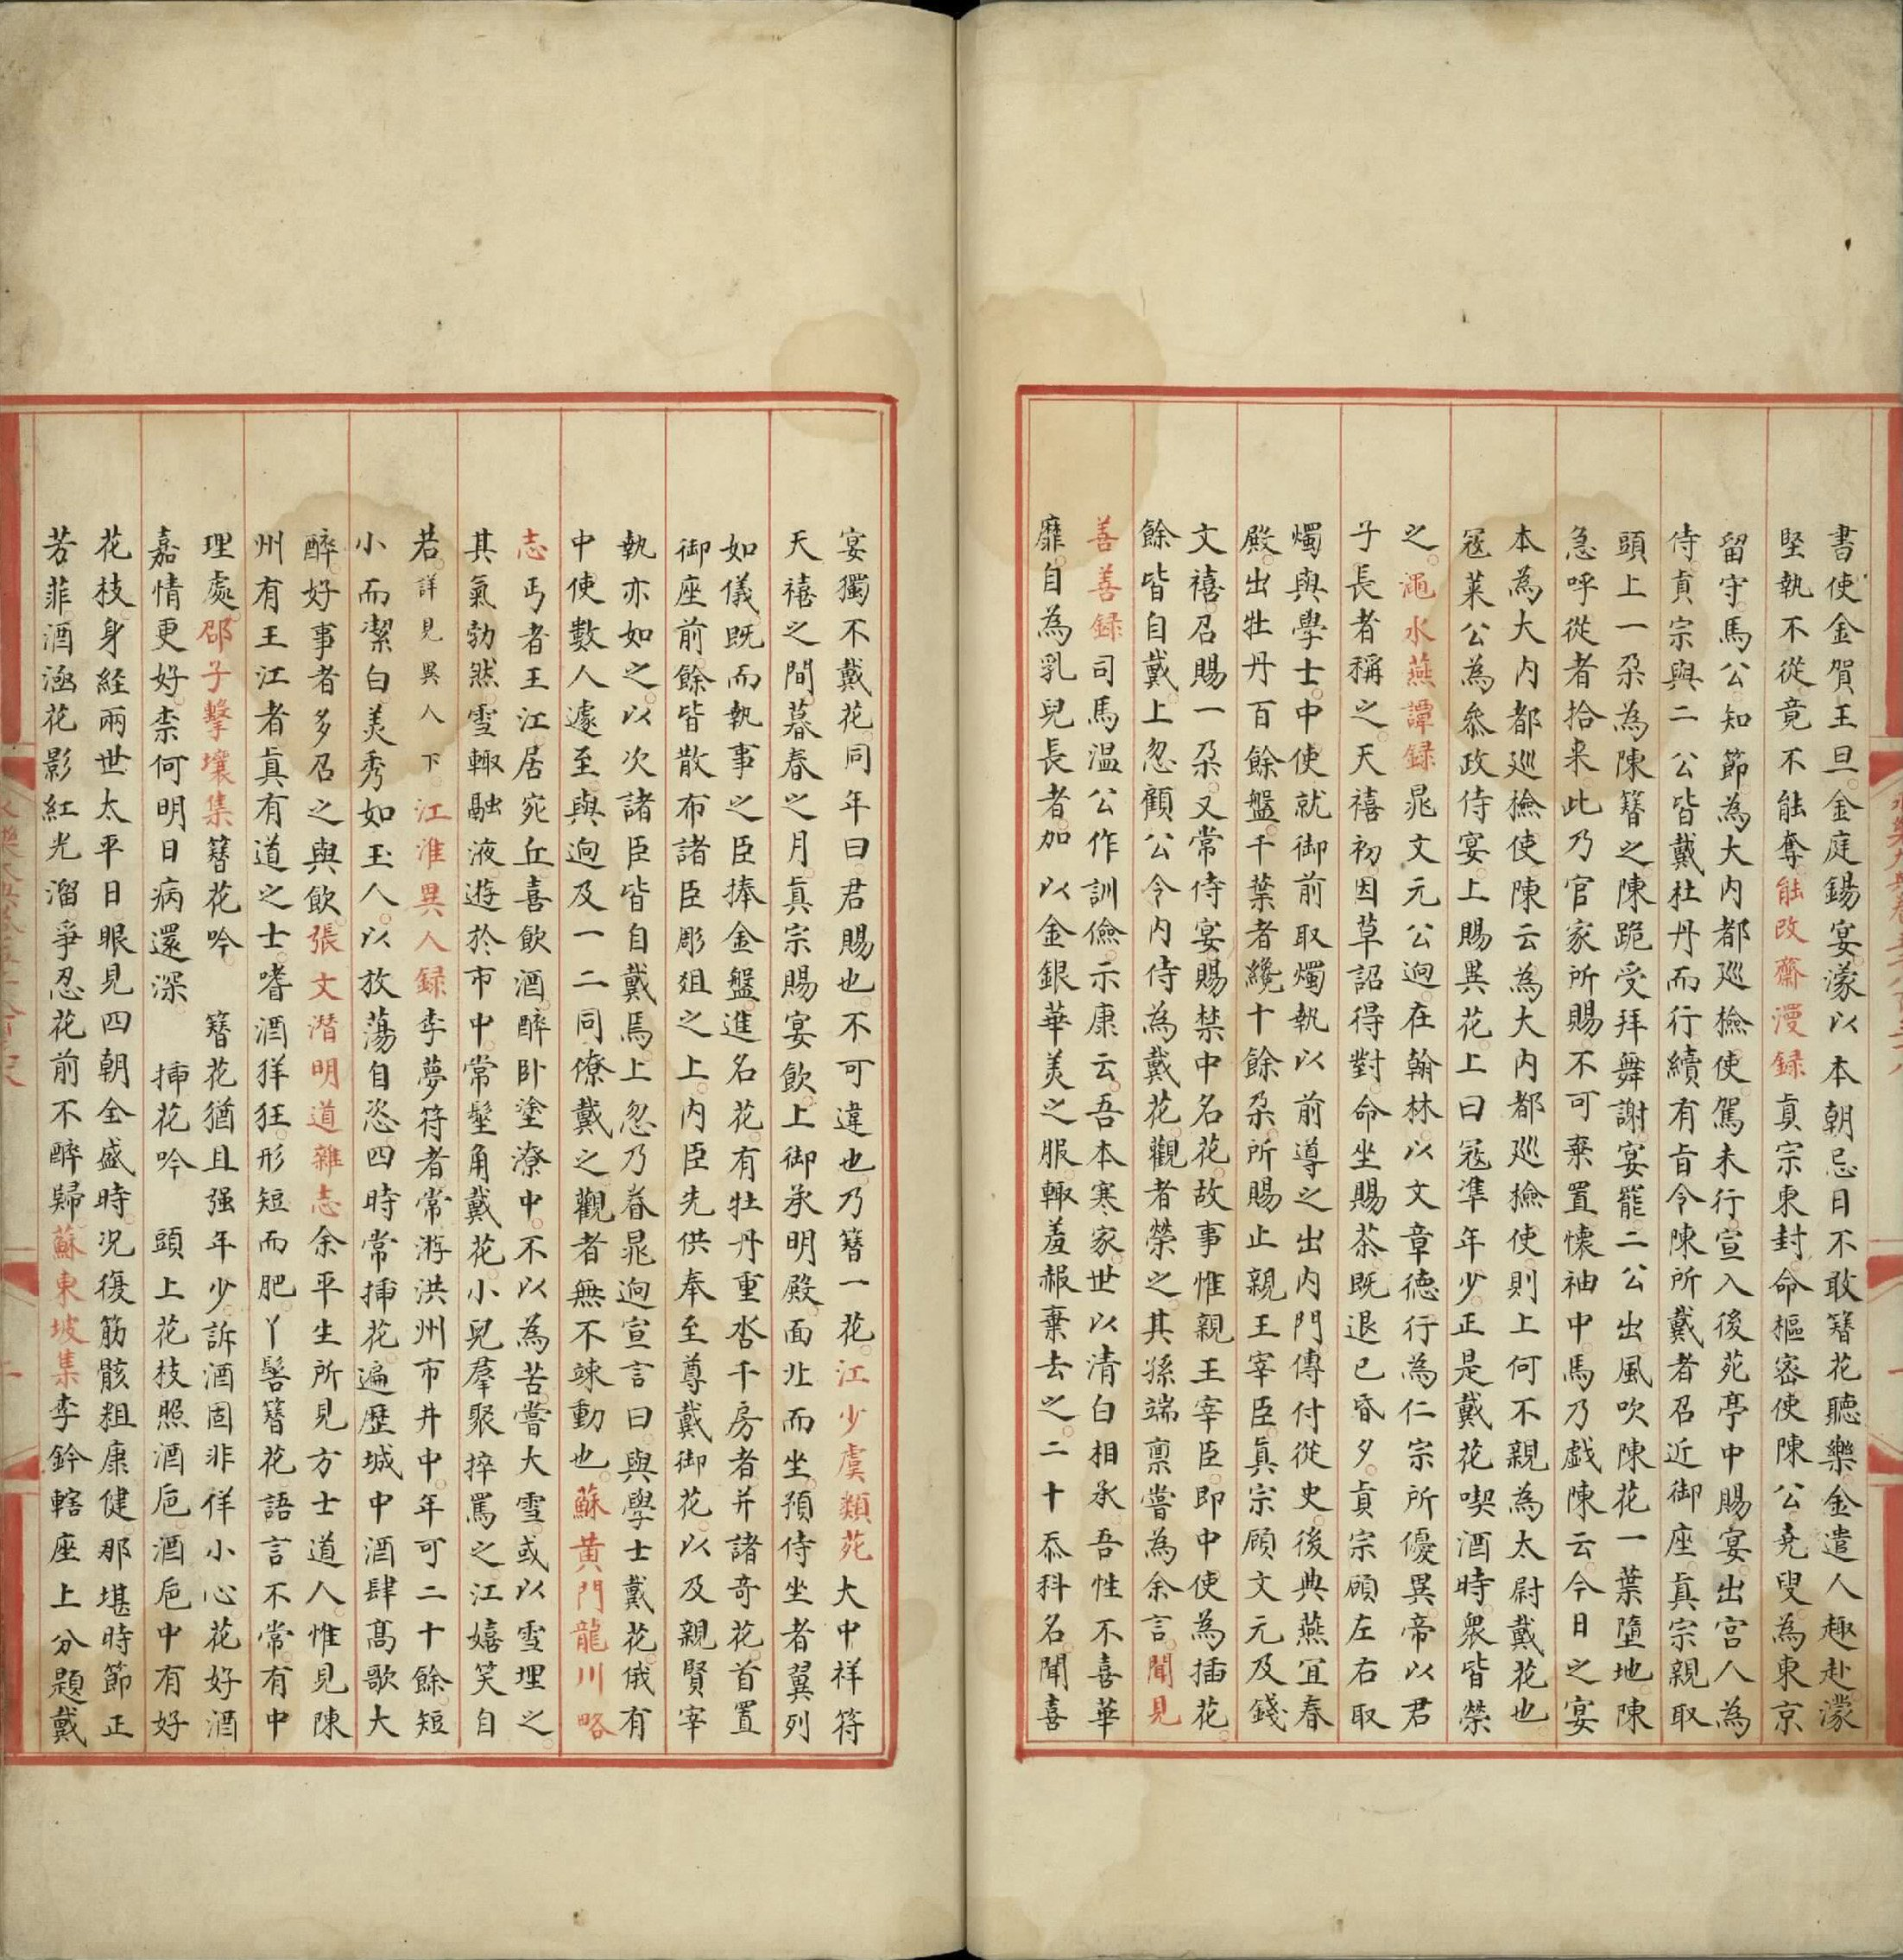 書使金賀王旦金庭錫宴濛以本朝忌日不敢簪花聽樂金遣人趣赴濛
堅執不從竟不能奪能改齋漫録真宗東封命樞密使陳公堯叟為東京
留守馬公知節為大内都巡檢使駕未行宣入後苑亭中賜宴出宮人為
侍真宗與二公皆戴杜丹而行續有旨令陳所戴者召近御座真宗親取
頭上一朶為陳簪之陳跪受拜舞謝宴罷二公出風吹陳花一葉墮地陳
急呼從者拾来此乃官家所賜不可棄置懷袖中馬乃戯陳云今日之宴
本為大内都巡檢使陳云為大内都巡檢使則上何不親為太尉戴花也
冦莱公為叅政侍宴上賜異花上曰冦凖年少正是戴花喫酒時衆皆榮
之澠水燕譚録晁文元公迥在翰林以文章德行為仁宗所優異帝以君
子長者稱之天禧初因草詔得對命坐賜茶既退已昏夕真宗顧左右取
燭與學士中使就御前取燭執以前導之出内門傳付從史後典燕宜春
殿出牡丹百餘盤千葉者纔十餘朶所賜止親王宰臣真宗顧文元及錢
文禧召賜一朶又常侍宴賜禁中名花故事惟親王宰臣即中使為插花
餘皆自戴上忽顧公令内侍為戴花觀者榮之其孫端禀嘗為余言聞見
善善録司馬温公作訓儉示康云吾本寒家世以清白相承吾性不喜華
靡自為乳兒長者加以金銀華美之服輙羞赧棄去之二十忝科名聞喜
宴獨不戴花同年曰君賜也不可違也乃簪一花江少虞類苑大中祥符
天禧之間暮春之月真宗賜宴飲上御承明殿面北而坐預侍坐者翼列
如儀既而執事之臣捧金盤進名花有牡丹重沓千房者并諸奇花首置
御座前餘皆散布諸臣彫俎之上内臣先供奉至尊戴御花以及親賢宰
執亦如之以次諸臣皆自戴焉上忽乃眷晁迥宣言曰與學士戴花俄有
中使數人遽至與迥及一二同僚戴之觀者無不竦動也蘇黄門龍川略
志丐者王江居宛丘喜飲酒醉卧塗潦中不以為苦嘗大雪或以雪埋之
其氣勃然雪輙融液遊於市中常髽角戴花小兒羣聚捽罵之江嬉笑自
若詳見異人下江淮異人録李夢符者常游洪州市井中年可二十餘短
小而潔白美秀如玉人以放蕩自恣四時常挿花遍歷城中酒肆髙歌大
醉好事者多召之與飲張文潛明道雜志余平生所見方士道人惟見陳
州有王江者真有道之士嗜酒佯狂形短而肥丫髻簪花語言不常有中
理處邵子擊壤集簪花吟 簪花猶且强年少訴酒固非佯小心花好酒
嘉情更好柰何明日病還深 挿花吟 頭上花枝照酒巵酒巵中有好
花枝身経兩世太平日眼見四朝全盛時况復筋骸粗康健那堪時節正
芳菲酒涵花影紅光溜爭忍花前不醉歸蘇東坡集李鈐轄座上分題戴